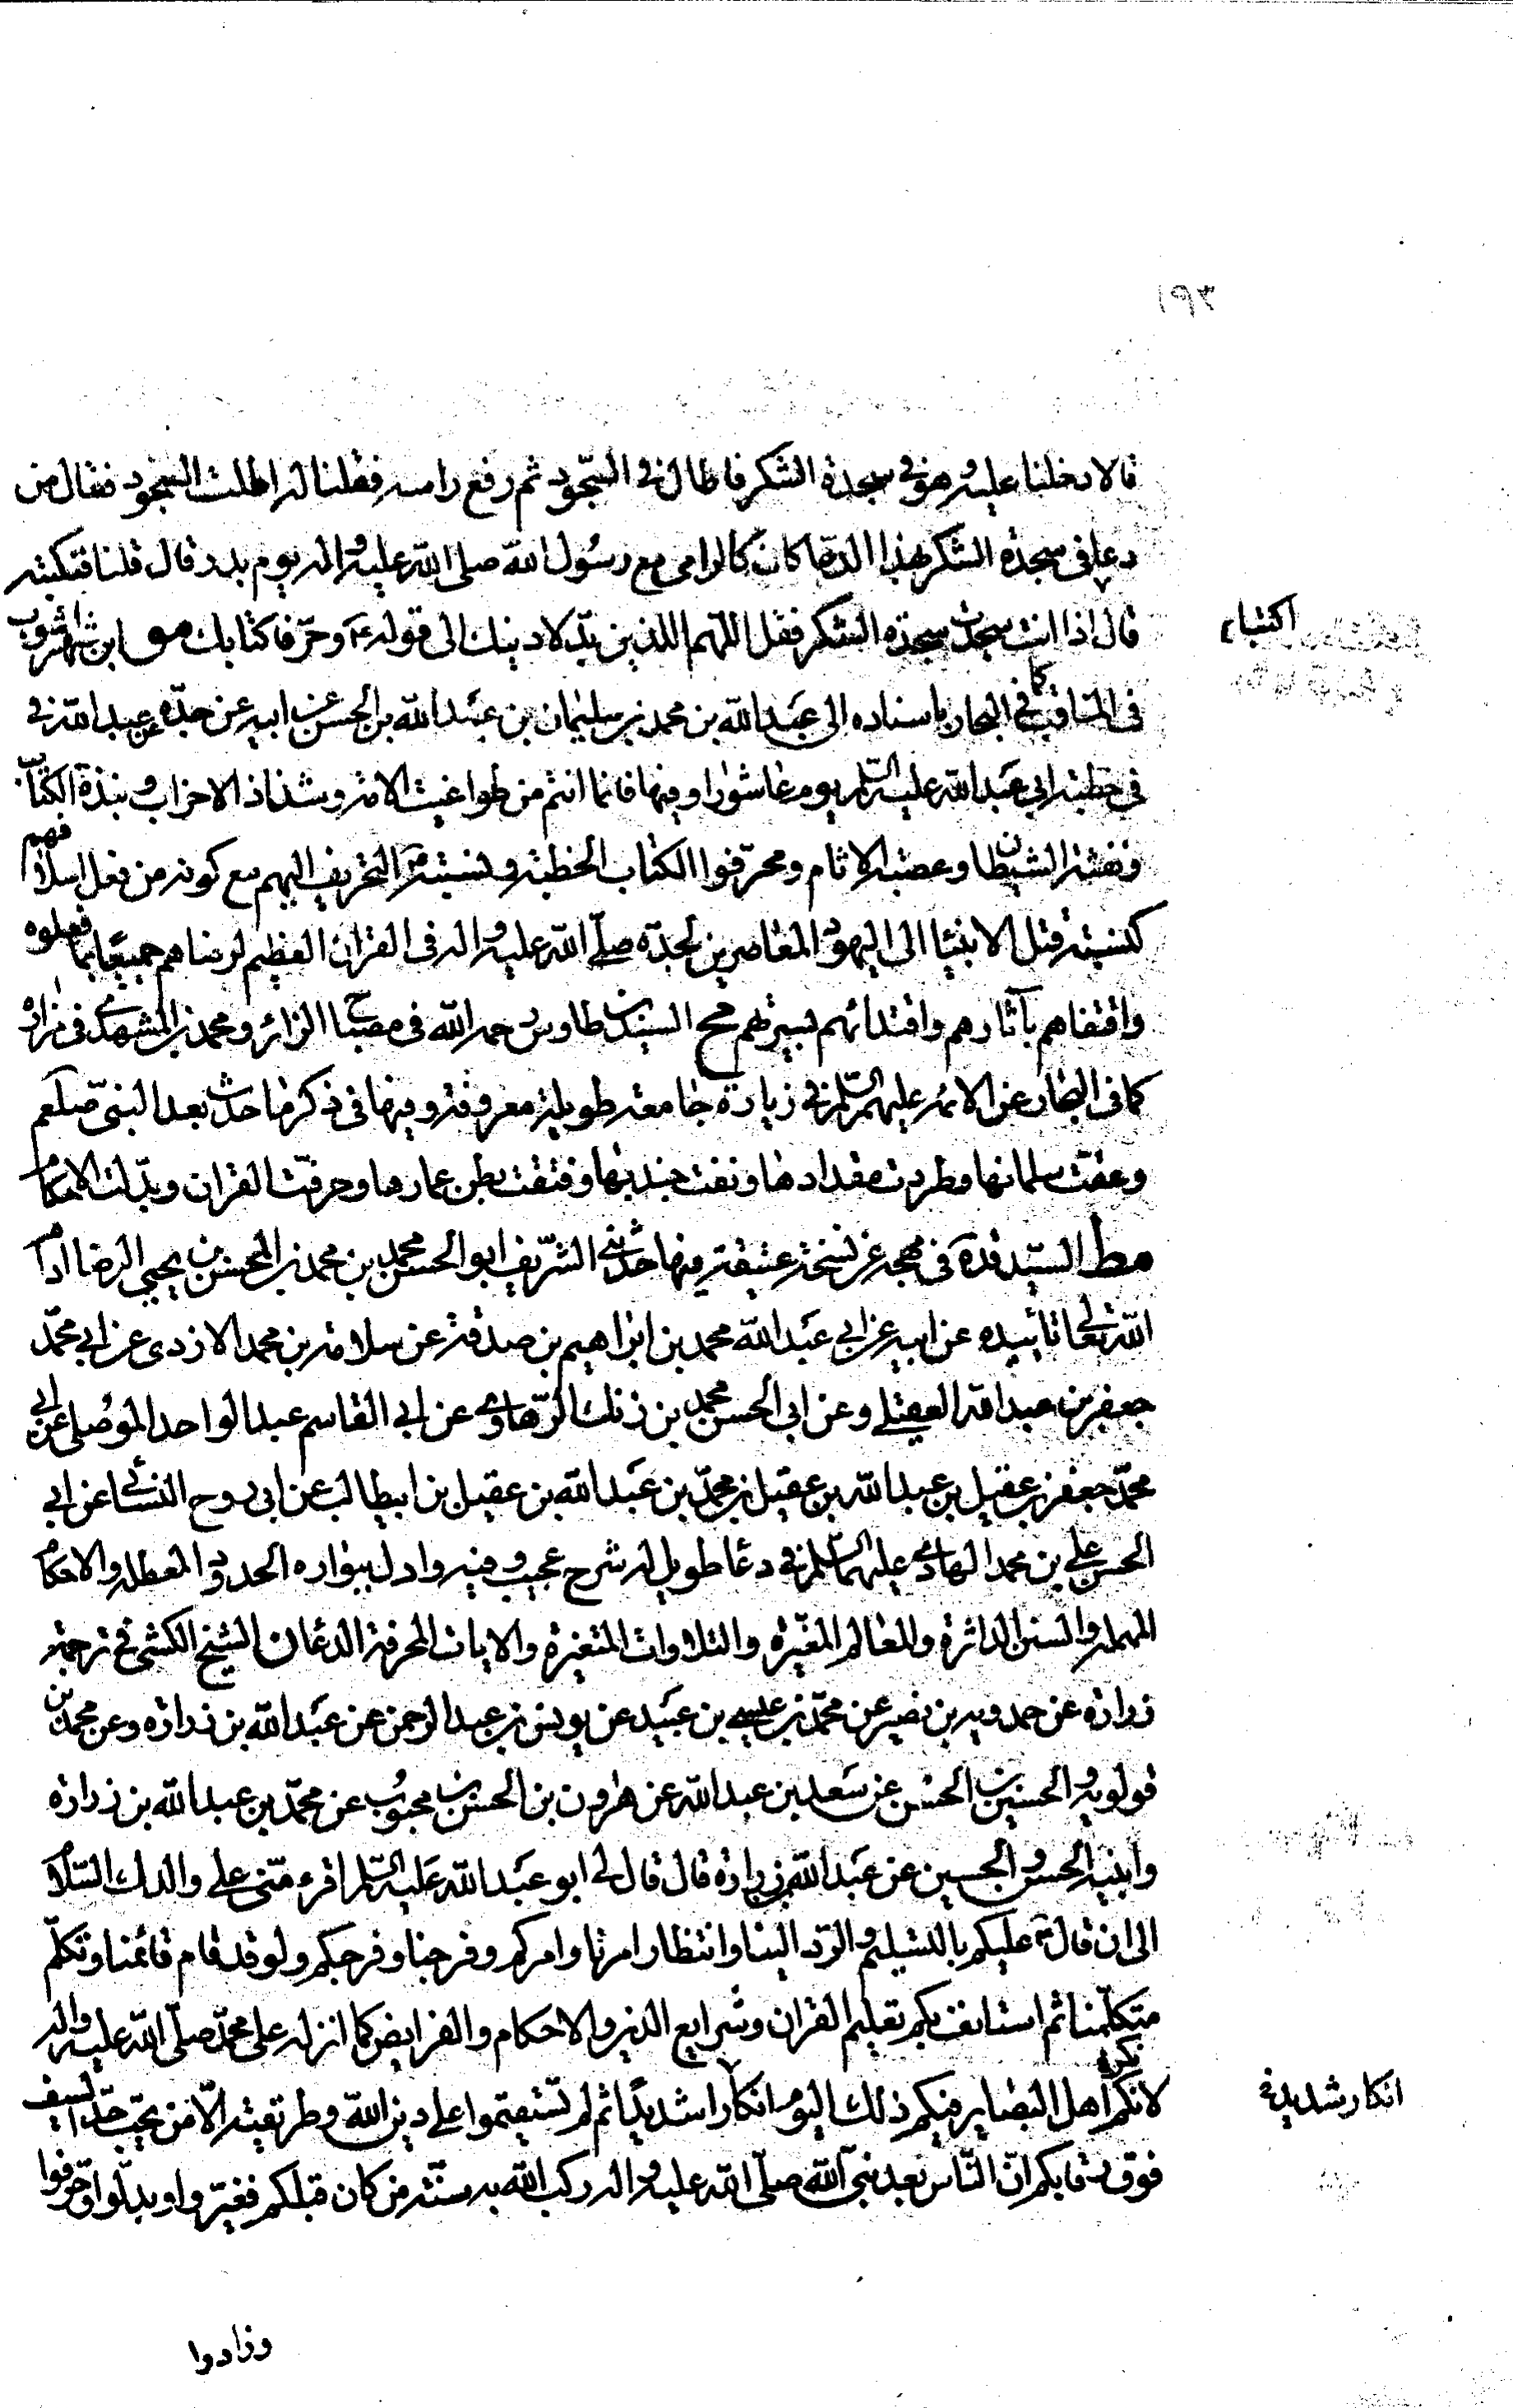 ١٩٣
قالا دخلنا عليه وهو فى سجدة الشكر فاطال فى السّجود ثم رفع راسه فقلنا له اطلت السجود فقال من
دعا فى سجدة الشكر بهذا الدّعا كان كالرامى مع رسُول الله صلى الله عليه واله يوم بدر قال قلنا فنكتبه
قال اذا انت سجدت سجدة الشكر فقل اللّهم اللذين بدّلا دينك الى قوله ع وحرّفا كتابك مو ابن شهراشوب
فى المناقب كما فى البحار باسناده الى عبد الله بن محمد بن سليمان بن عبد الله بن الحسن عن ابيه عن جدّه عن عبد الله فى
فى خطبة ابي عبد الله عليه السّلم يوم عاشورا وفيها فانما انتم من طواغيت الامّة وشذاذ الاحزاب ونبذة الكتاب
ونفثة الشيطان وعصبة الاثام ومحرّفوا الكتاب الخطبة ونسبته ع التحريف اليهم مع كونه من فعل اسلافهم
كنسبة قتل الانبيا الى اليهود المعاصرين لجدّه صلّى الله عليه واله فى القران العظيم لرضاهم جميعًا بما فعلوه
واقتفاهم بآثارهم واقتدائهم بسيرتهم مح السيد بن طاوس رحمه الله فى مصباح الزائر ومحمد بن المشهدى فى مزاره
كما فى البحار عن الائمة عليهم السّلم فى زيارة جامعة طويلة معروفة وفيها فى ذكر ما حدث بعد النبى صلعم
وعقّت سلمانها وطردت مقدادها ونفت جندبها وفتقت بطن عمارها وحرفت القران وبدّلت الاحكام
مط السيّد قده فى مهجه عن نسخة عتيقة وفيها حدثنى الشّريف ابو الحسن محمد بن محمد بن المحسن بن يحيى الرضا ادام
الله تعالى تاييده عن ابيه عن ابى عبد الله محمد بن ابراهيم بن صدقة عن سلامة بن محمد الازدى عن ابى محمّد
جعفر بن عبد الله العقيلى وعن ابى الحسن محمد بن زنك الرّهاوى عن ابى القاسم عبد الواحد الموصلى عن ابى
محمّد جعفر بن عقيل بن عبد الله بن عقيل بن محمّد بن عبد الله بن عقيل بن ابيطالب عن ابى روح النسائى عن ابى
الحسن على بن محمد الهادى عليهما السّلم فى دعا طويل له شرح عجيب وفيه وادل ببواره الحدود المعطلة والاحكام
المهملة والسنن الداثرة والمعالم المغيّرة والتلاوات المتغيرة والايات المحرفة الدعا ن الشيخ الكشى فى ترجمة
زرارة عن حمدويه بن نصير عن محمّد بن عيسى بن عبيد عن يونس بن عبد الرحمن عن عبد الله بن زرارة وعن محمد بن
قولويه والحسين بن الحسن عن سعد بن عبد الله عن هرون بن الحسن بن محبوب عن محمّد بن عبد الله بن زرارة
وابنيه الحسن والحسين عن عبد الله بن زرارة قال قال لى ابو عبد الله عليه السّلم اقرء منّى على والدك السّلام
الى ان قال ع عليكم بالتسليم والرّد الينا وانتظار امرنا وامركم وفرجنا وفرجكم ولو قد قام قائمنا وتكلّم
متكلّمنا ثم استانف بكم تعليم القران وشرايع الدين والاحكام والفرايض كما انزله على محمّد صلّى الله عليه واله
لانكر اهل البصاير فيكم ذلك اليوم انكارا شديدًا ثم لم تستقيموا على دين الله وطريقته الّا من تحت حدّ السيف
فوق رقابكم انّ النّاس بعد نبى الله صلّى الله عليه واله ركب الله به سنّة من كان قبلكم فغيّروا وبدّلوا وحرّفوا
اكتتباه
انكار شديد
وزادوا